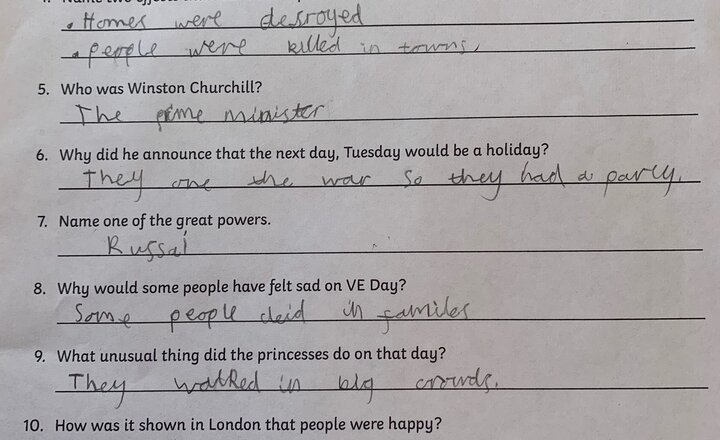 • Homes were desroyed
• people were killed in towns,
5. Who was Winston Churchill?
The prime minister
6. Why did he announce that the next day, Tuesday would be a holiday?
They one the war so they had a party.
7. Name one of the great powers.
Russai
8. Why would some people have felt sad on VE Day?
Some people deid in familes
9. What unusual thing did the princesses do on that day?
They walked in big crowds.
10. How was it shown in London that people were happy?